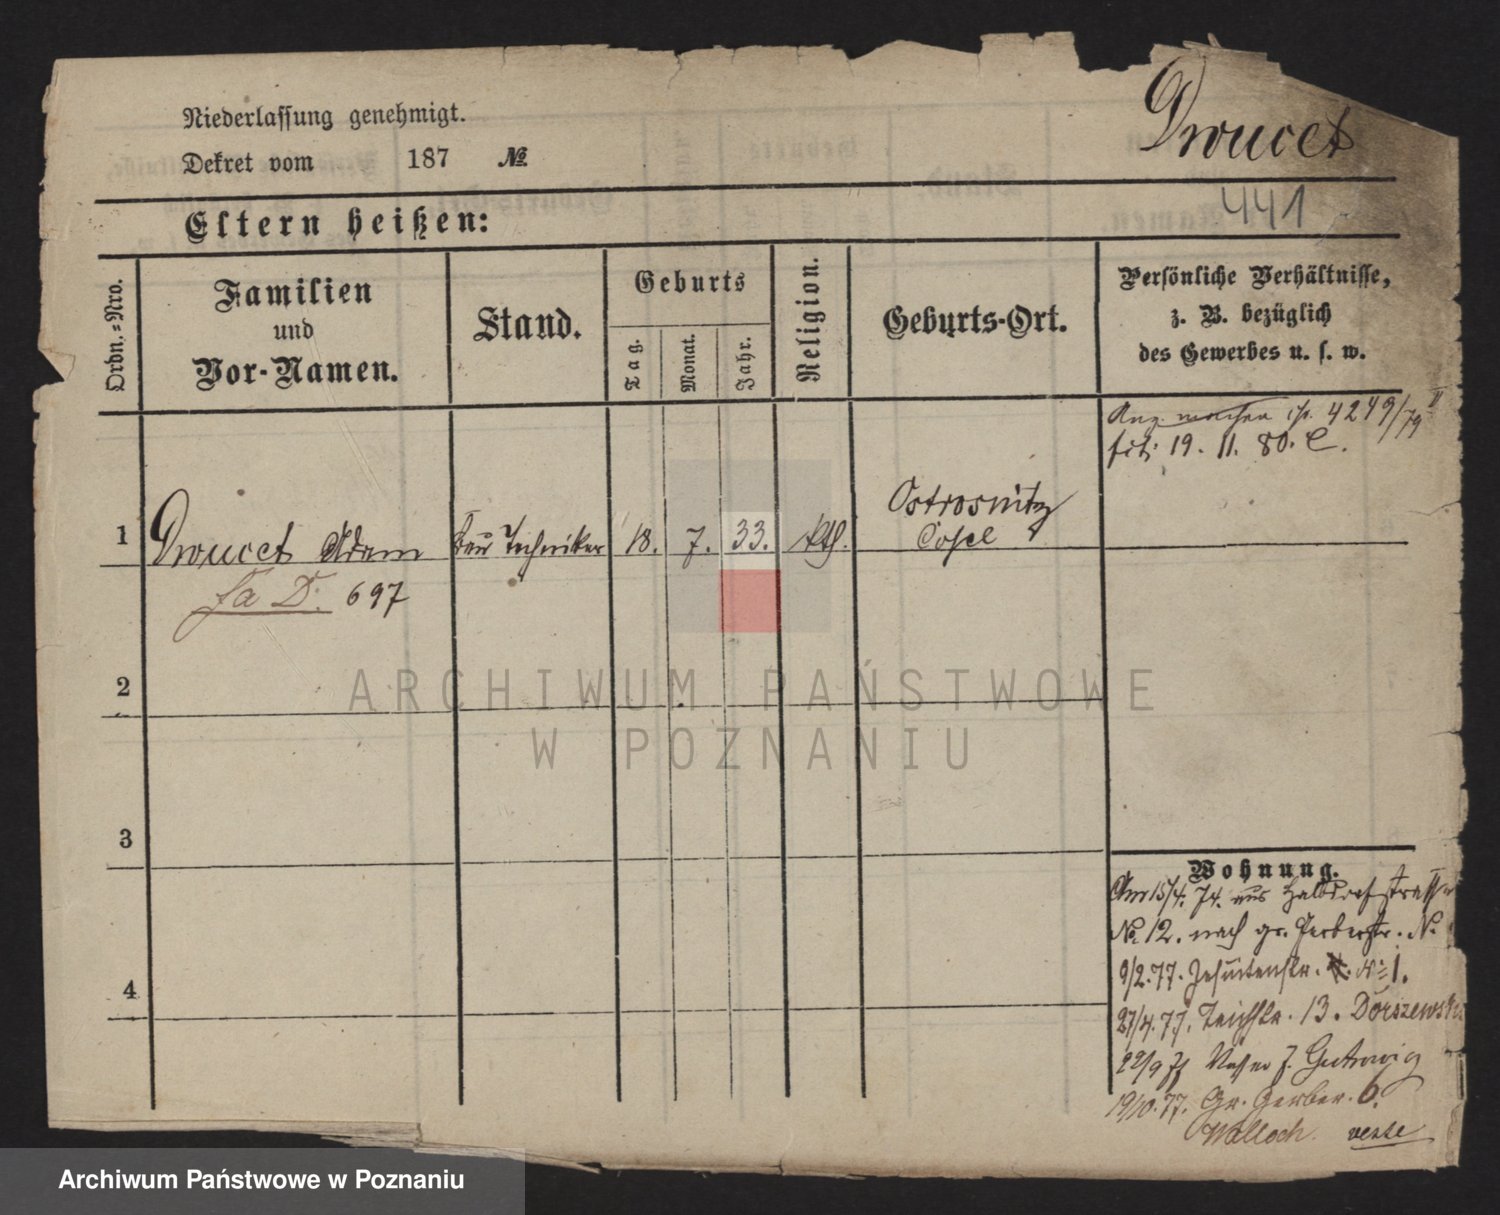 Niederlassung genehmigt.
Dekret vom 187 №
Droucet
441
Eltern heißen:
Ordn.-Nro.
Familien
und
Vor-Namen.
Stand.
Geburts
Tag.
Monat.
Jahr.
Religion.
Geburts-Ort.
Persönliche Verhältnisse,
z. B. bezüglich
des Gewerbes u. s. w.
4249/79 II
19. 11. 80. C.
1 Droucet Adam Bau Techniker 18. 7. 33. kth. Ostrosnitz
Cosel
fa D. 697
2
3
4
Wohnung.
Am 15/4. 74. aus Halbdorfstrasse
No. 12. nach gr. Gerberstr. No
9/2. 77. Jesuitenstr. No 1.
27/4. 77. Teichstr. 13. Dorszewski
22/9 77 Gutowig
19/10. 77. Gr. Gerber. 6.
Walloch verte
ARCHIWUM PAŃSTWOWE
W POZNANIU
Archiwum Państwowe w Poznaniu